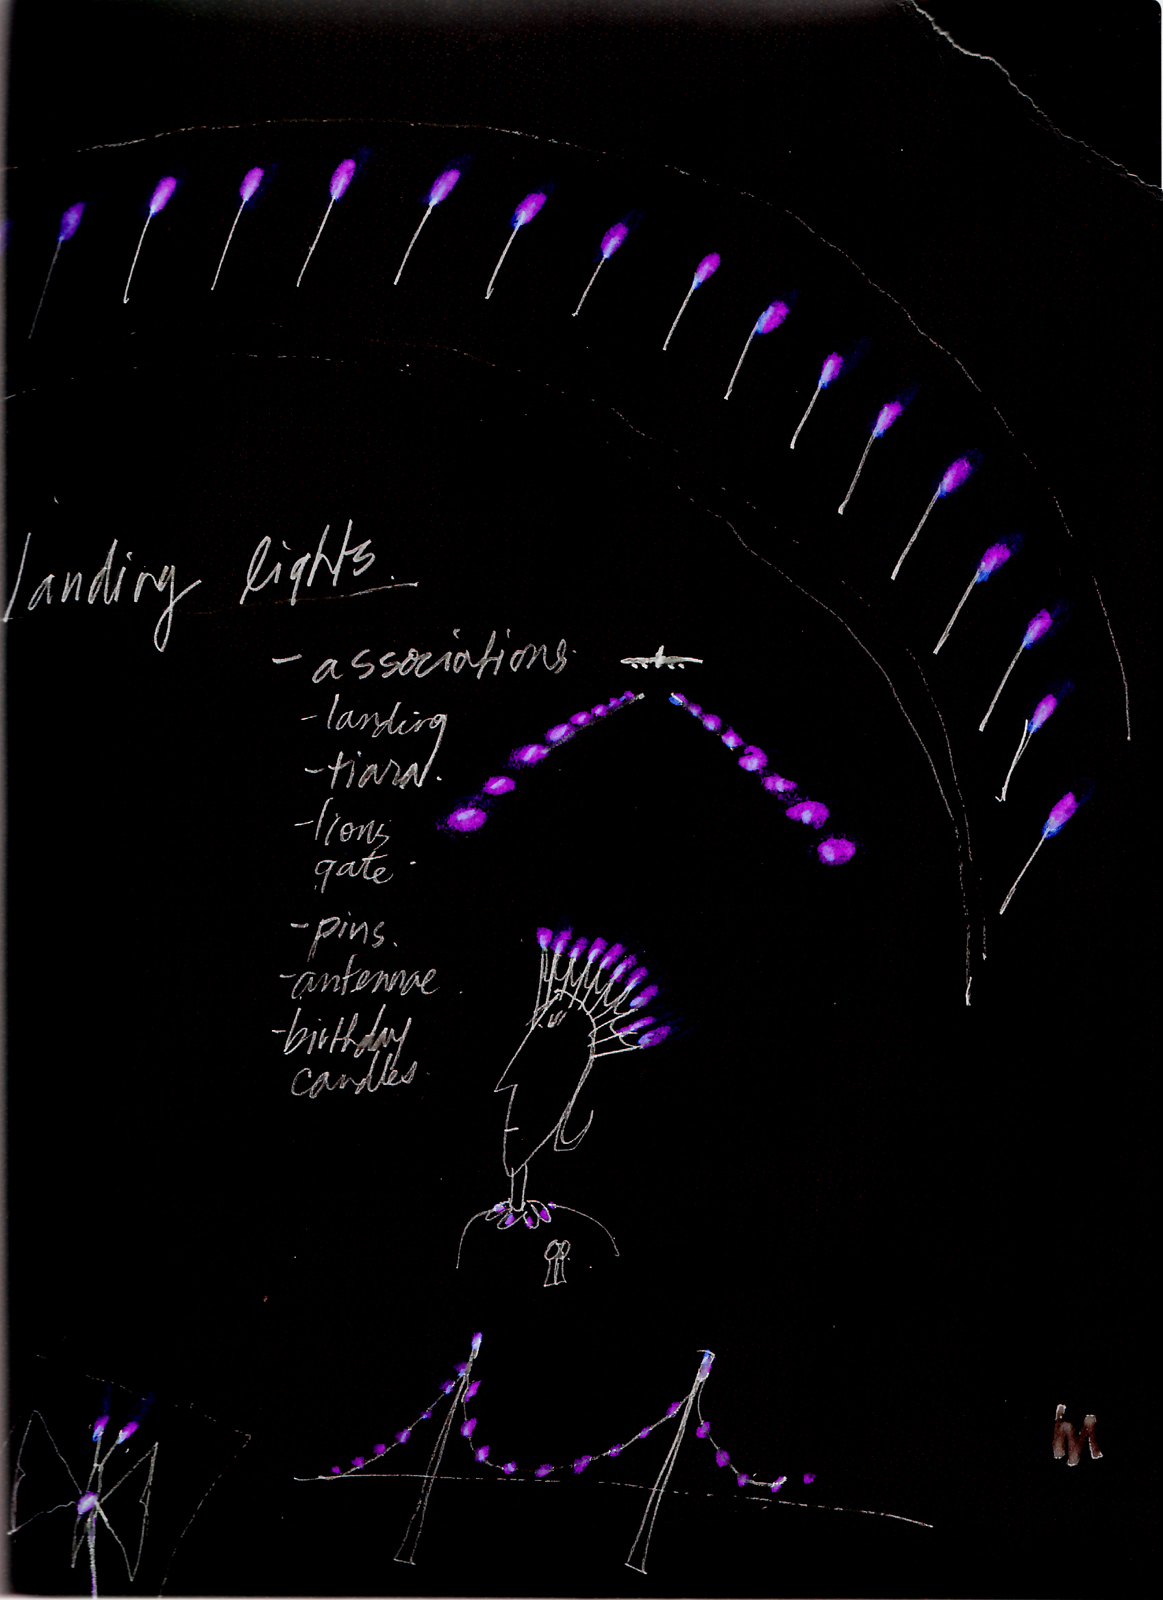 landing lights.
- associations.
- landing
- tiara.
- lions
gate.
- pins.
- antennae.
- birthday
candles.
M